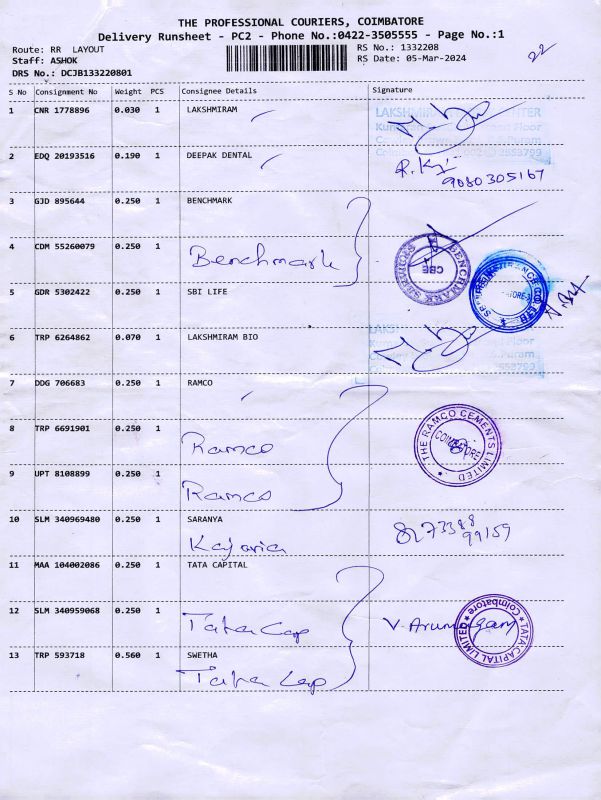 THE PROFESSIONAL COURIERS, COIMBATORE
Delivery Runsheet - PC2 - Phone No.:0422-3505555 - Page No.:1
Route: RR LAYOUT
Staff: ASHOK
DRS No.: DCJB133220801
RS No.: 1332208
RS Date: 05-Mar-2024
22
S No Consignment No Weight PCS Consignee Details Signature
1 CNR 1778896 0.030 1 LAKSHMIRAM
2 EDQ 20193516 0.190 1 DEEPAK DENTAL
9080305167
3 GJD 895644 0.250 1 BENCHMARK
4 CDM 55260079 0.250 1 Benchmark
BENCHMARK SERVICES CBE
5 GDR 5302422 0.250 1 SBI LIFE
6 TRP 6264862 0.070 1 LAKSHMIRAM BIO
7 DDG 706683 0.250 1 RAMCO
8 TRP 6691901 0.250 1 Ramco
THE RAMCO CEMENTS LIMITED COIMBATORE
9 UPT 8108899 0.250 1 Ramco
10 SLM 340969480 0.250 1 SARANYA
Kajaria
11 MAA 104002086 0.250 1 TATA CAPITAL
12 SLM 340959068 0.250 1 Tata Cap V. Arumugam
TATA CAPITAL LIMITED Coimbatore
13 TRP 593718 0.560 1 SWETHA
Tata Cap